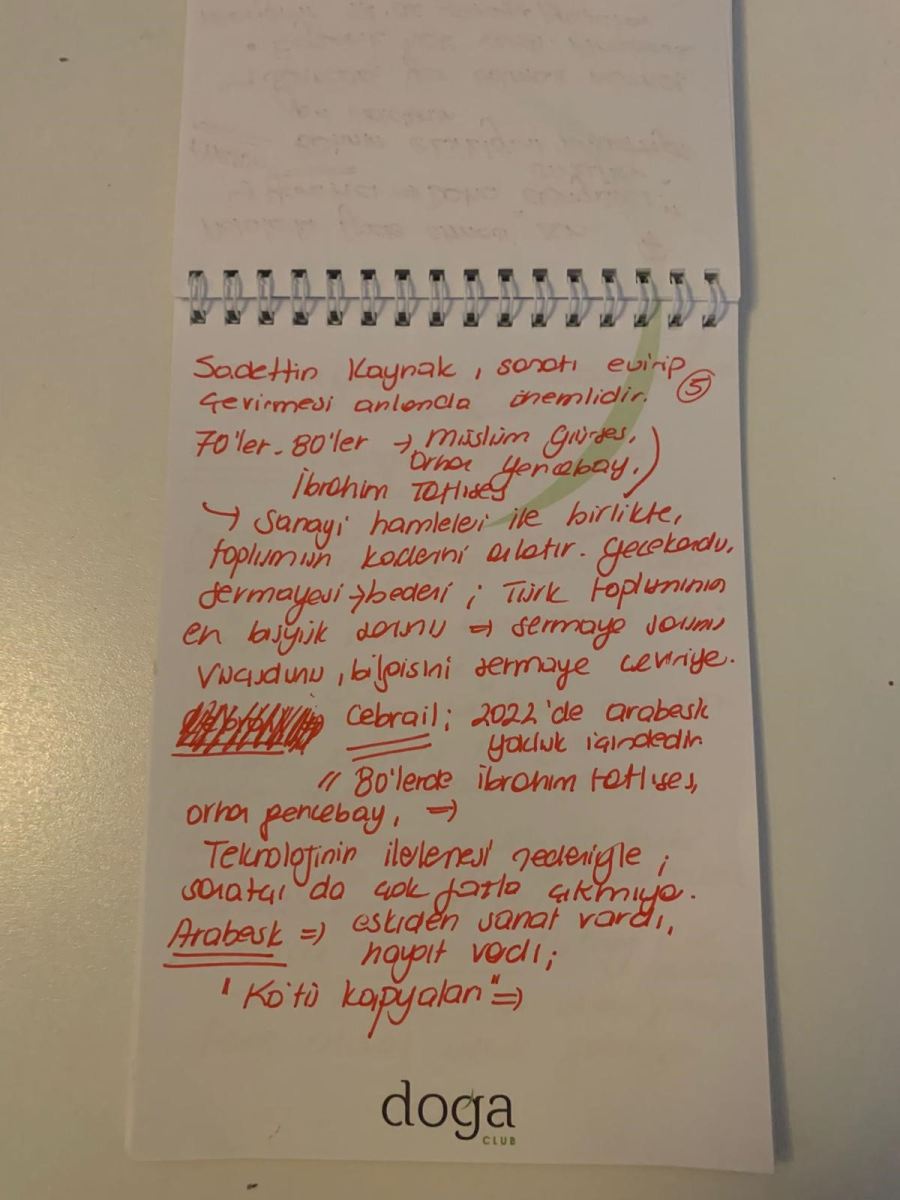 Sadettin Kaynak, sanatı evirip
çevirmesi anlamda önemlidir. 5
70'ler - 80'ler → Müslüm Gürses,
Orhan Gencebay,
İbrahim Tatlıses
↳ Sanayi hamleleri ile birlikte,
toplumun kaderini anlatır. Gecekondu,
sermayesi → bedeni ; Türk toplumunun
en büyük sorunu ⇒ sermaye sorunu
vucudunu, bilgisini sermaye çeviriyo.
Cebrail; 2022'de arabesk
yokluk içindedir
" 80'lerde İbrahim tatlıses,
orhan gencebay, ⇒
Teknolojinin ilerlemesi nedeniyle ;
sanatçı da çok fazla çıkmıyo.
Arabesk ⇒ eskiden sanat vardı,
hayat vardı;
" Kötü kopyaları" ⇒
doğa
CLUB